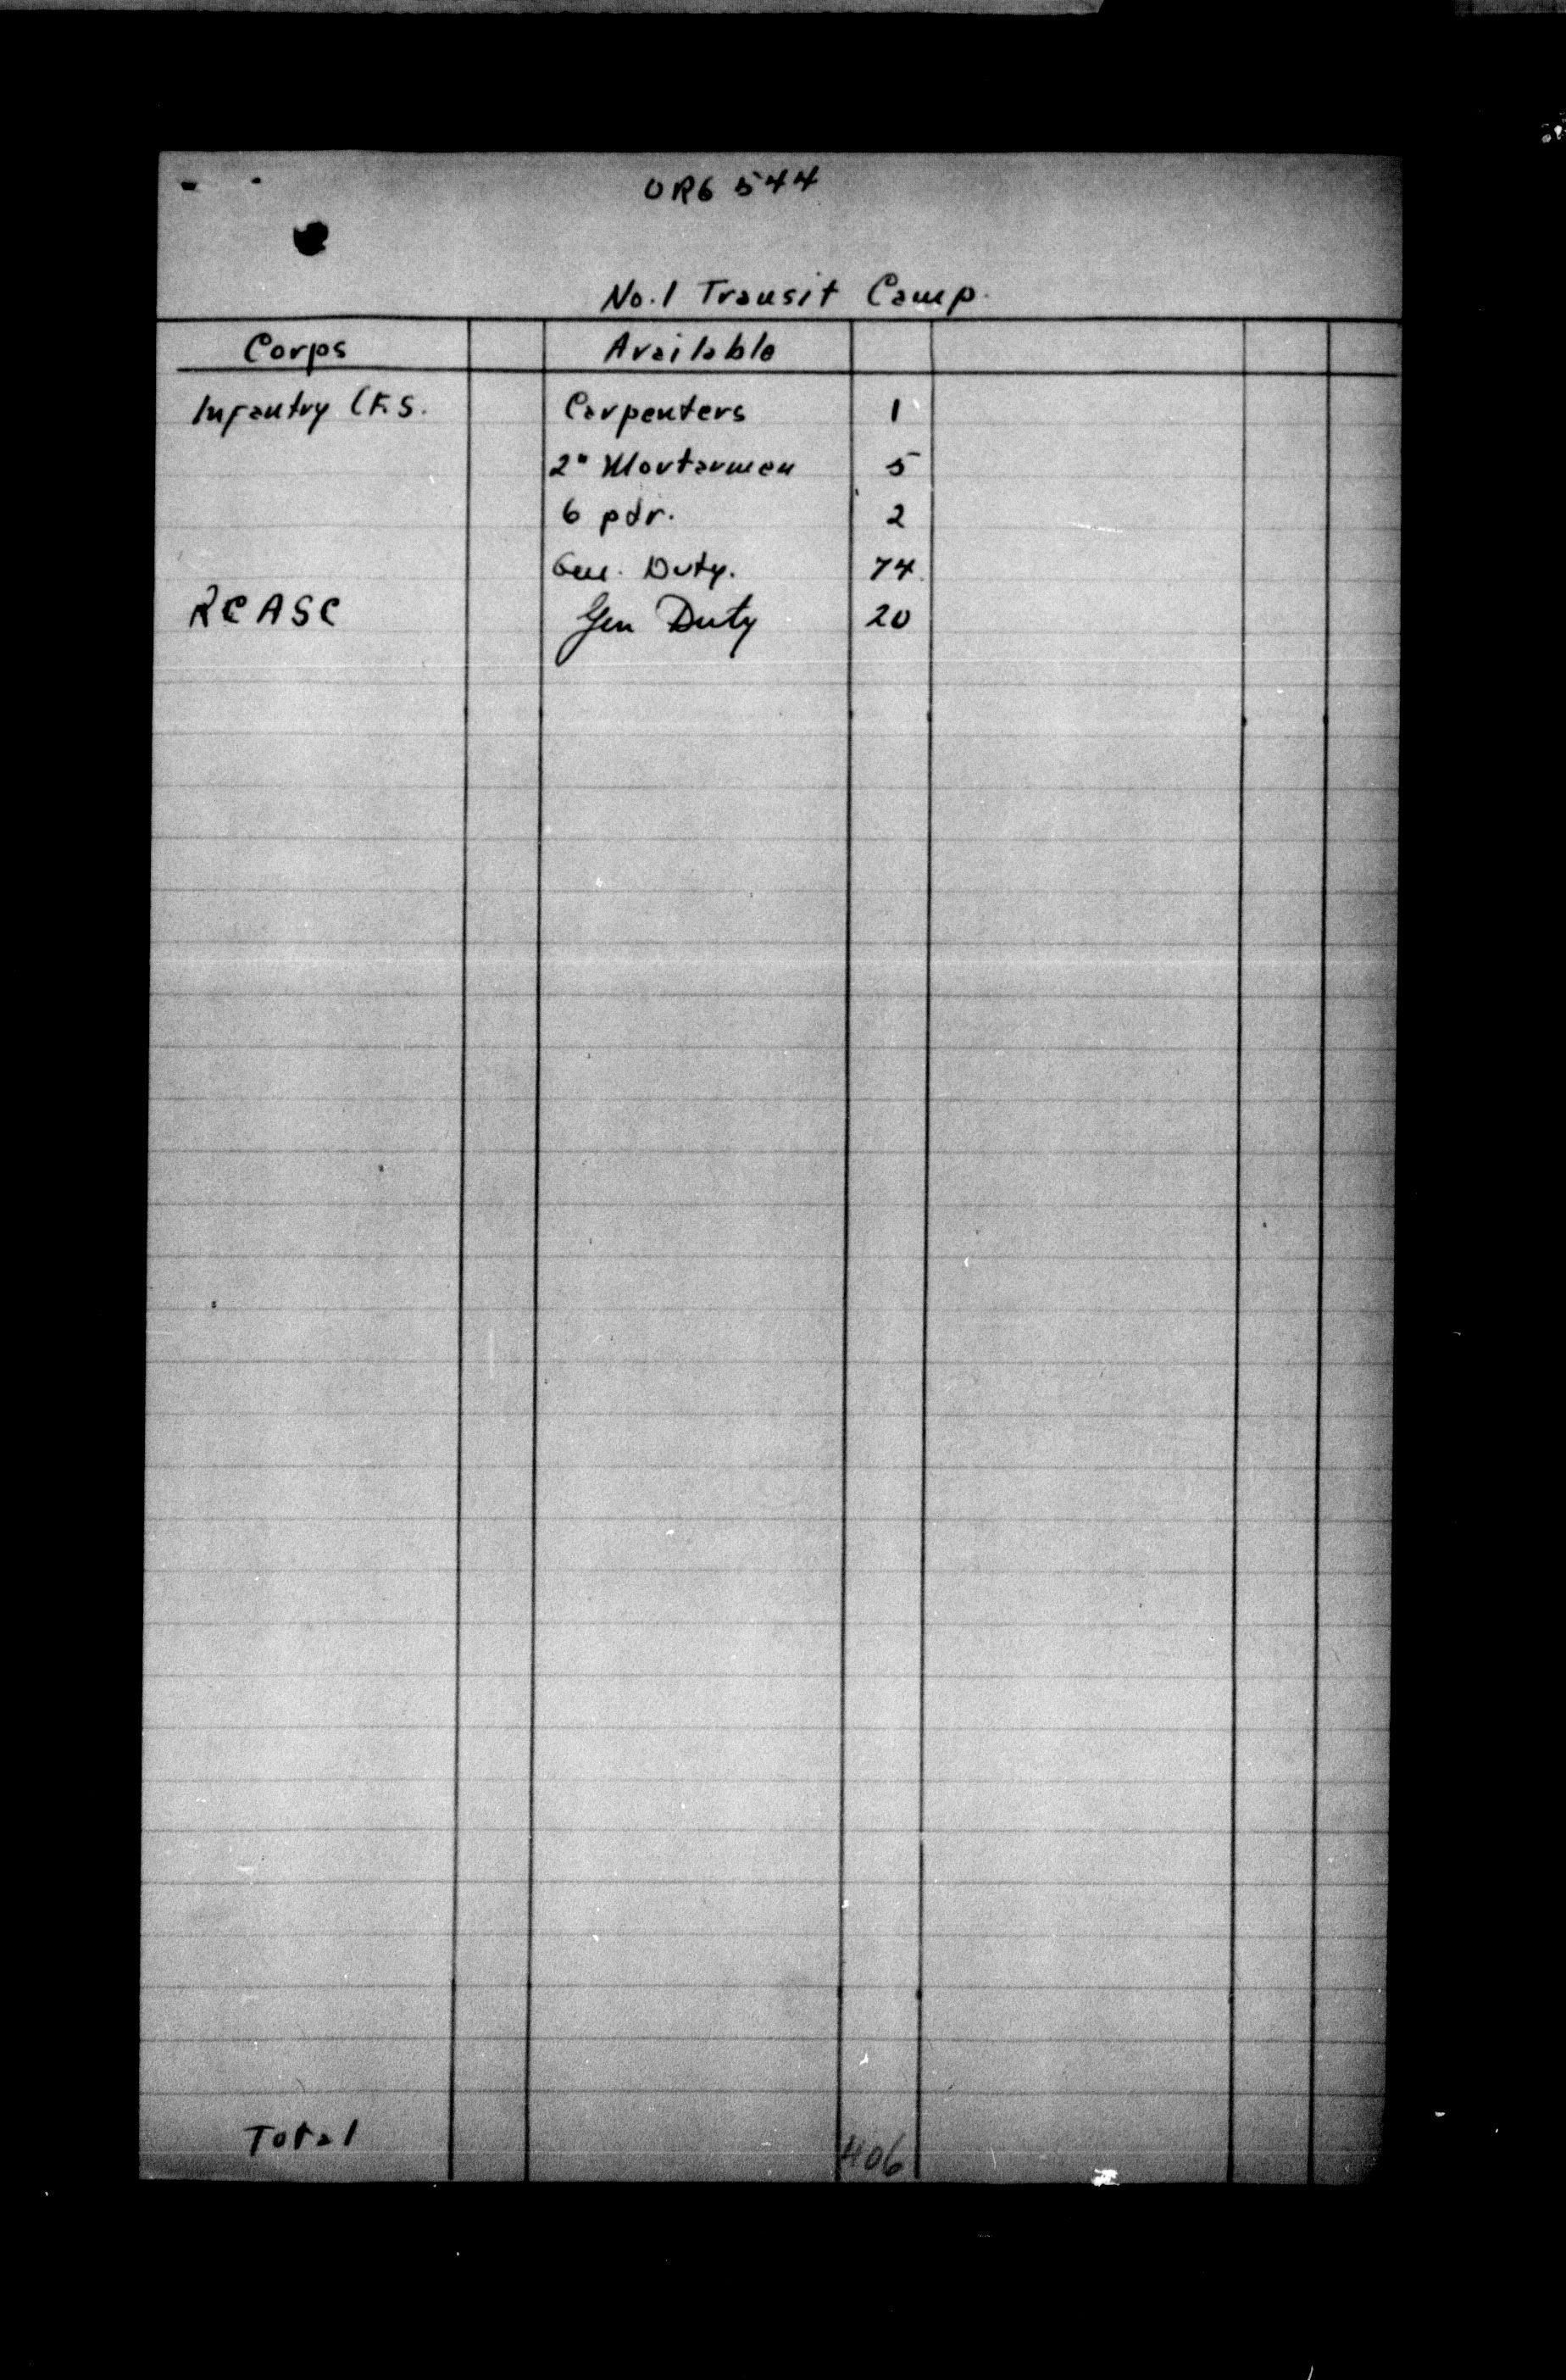 OR6 544
No.1 Transit Camp.
Corps Available
Infantry (F.S. Carpenters 1
2" Mortarmen 5
6 pdr. 2
Gen. Duty. 74
RCASC Gen Duty 20
Total 406